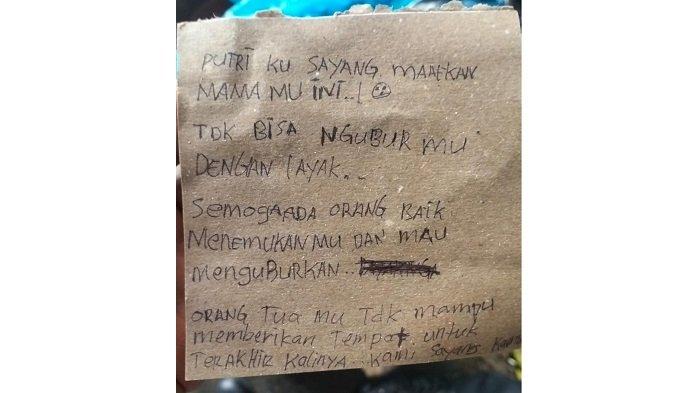 PUTRI KU SAYANG MAAFKAN
MAMA MU INI..!
TDK BISA NGUBUR MU
DENGAN LAYAK..
SEMOGA ADA ORANG BAIK
MENEMUKANMU DAN MAU
MENGUBURKAN..
ORANG TUA MU TDK MAMPU
MEMBERIKAN TEMPAT UNTUK
TERAKHIR KALINYA... KAMI SAYANG